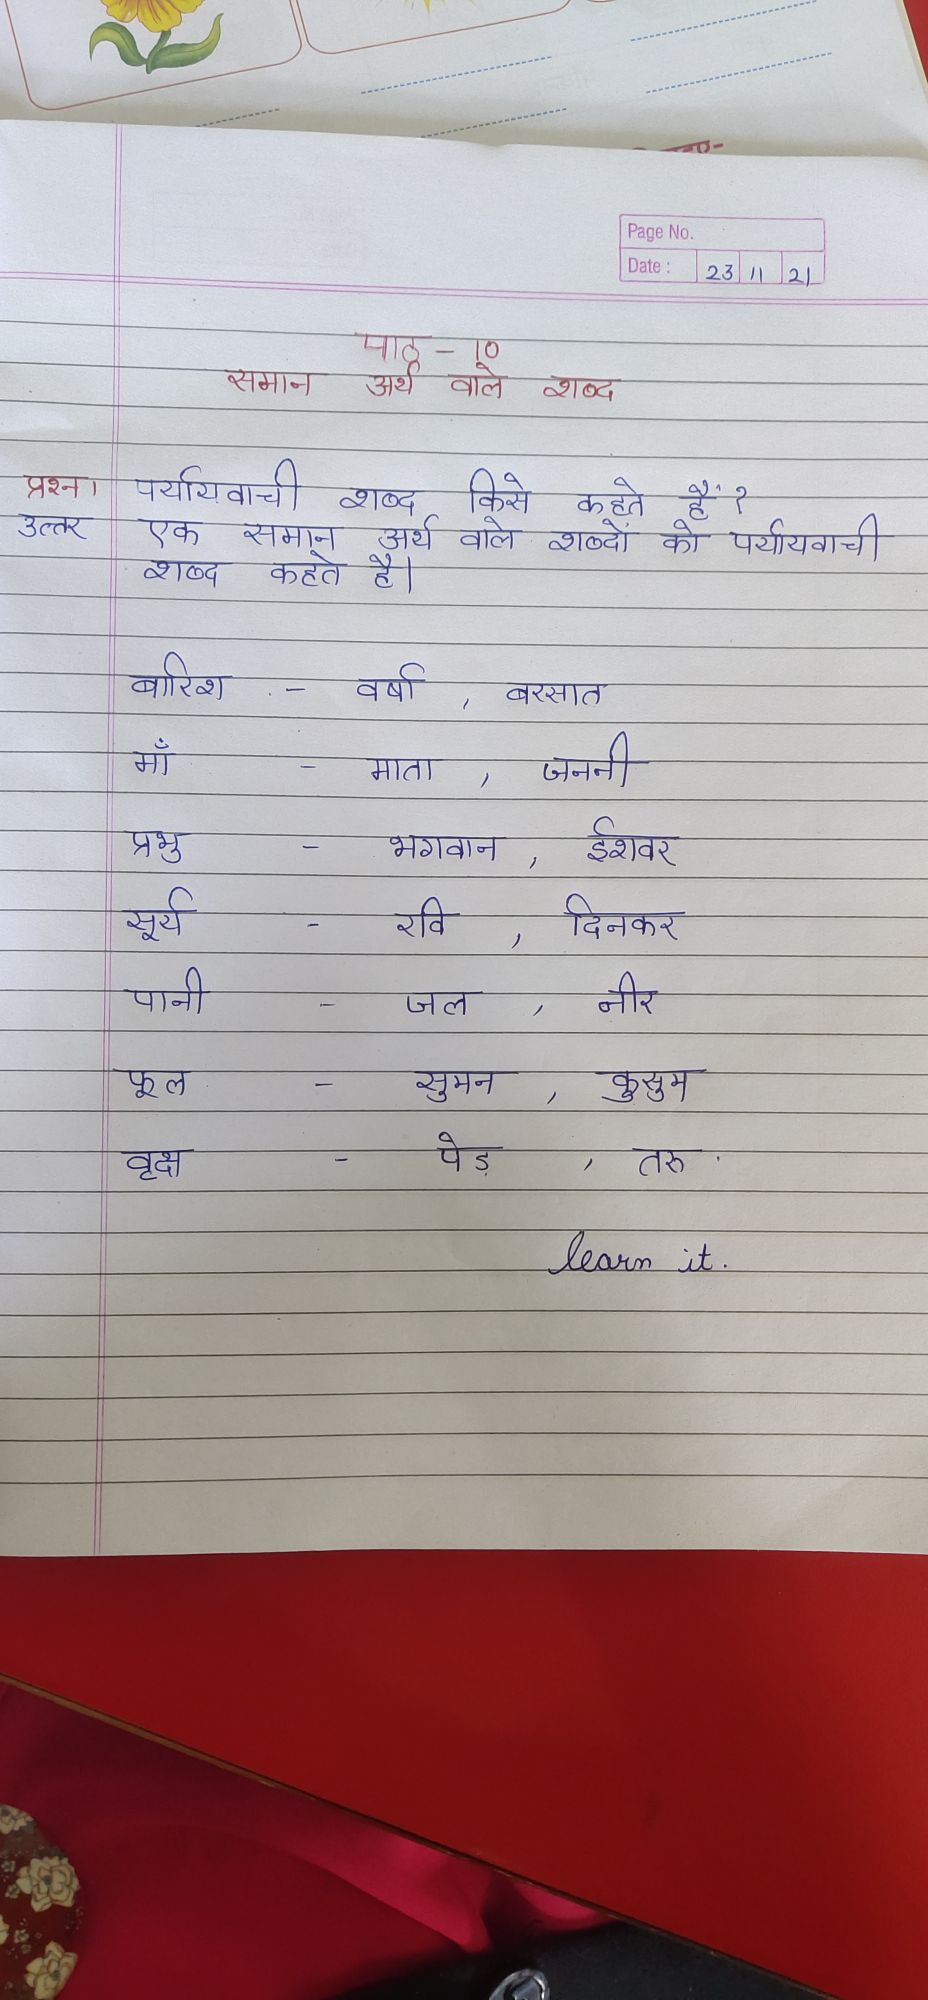 Page No.
Date : 23 11 21
पाठ - 10
समान अर्थ वाले शब्द
प्रश्न। पर्यायवाची शब्द किसे कहते हैं ?
उत्तर एक समान अर्थ वाले शब्दों को पर्यायवाची
शब्द कहते है।
बारिश - वर्षा , बरसात
माँ - माता , जननी
प्रभु - भगवान , ईशवर
सूर्य - रवि , दिनकर
पानी - जल , नीर
फूल - सुमन , कुसुम
वृक्ष - पेड़ , तरू .
learn it.